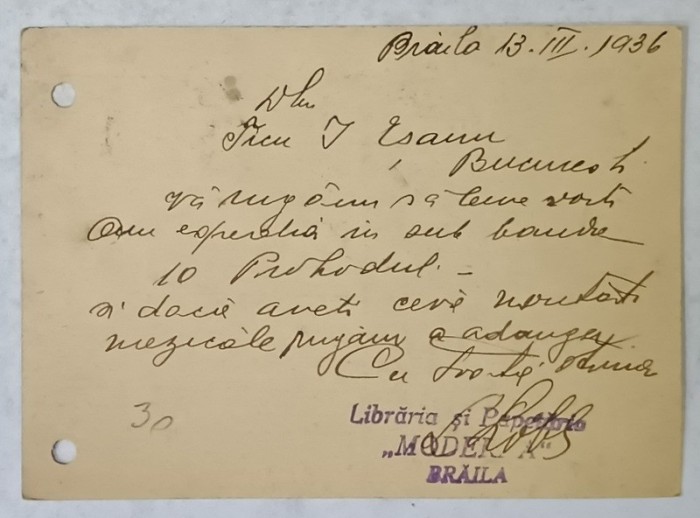 Brăila 13.III.1936
Dlui
I Esanu
Bucuresti
Vă rugăm să bine voiti
a ne expedia in sub banda
10 Prohodul. —
si dacă aveti ceva noutăti
muzicale rugăm a adauga.
Cu toată stima
30
Librăria și Papetăria
„MODERNA"
BRĂILA